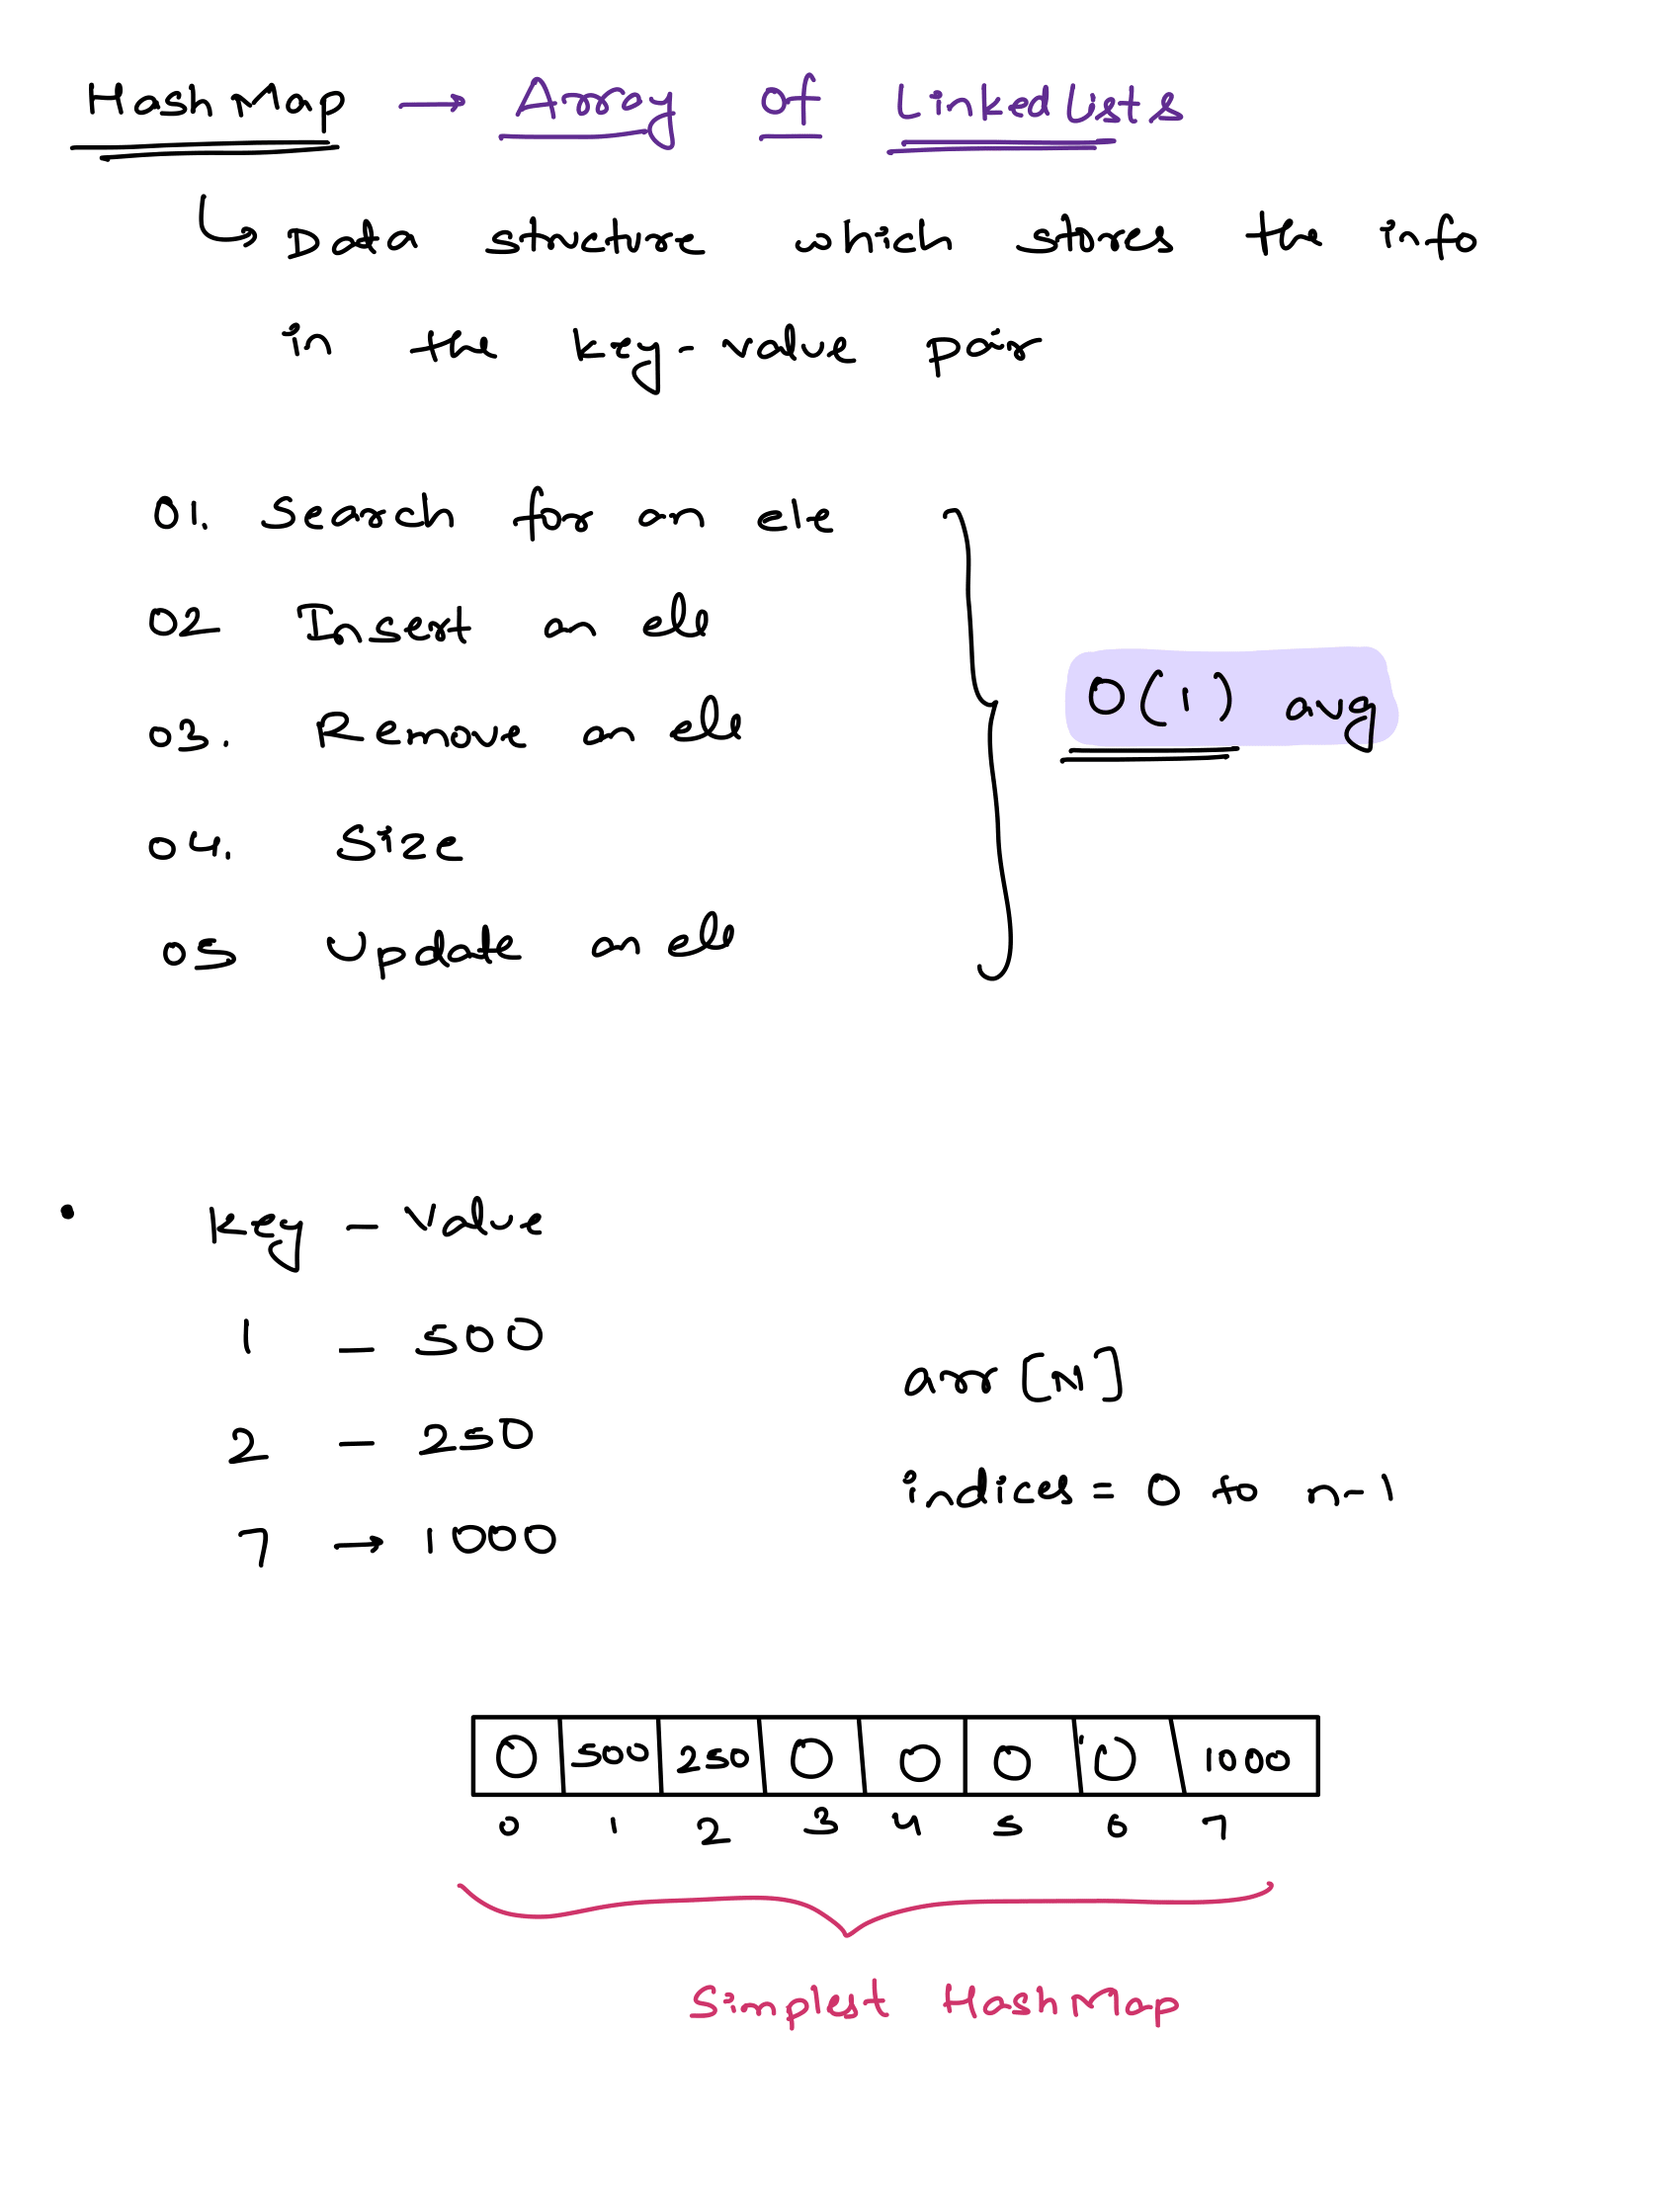 HashMap → Array of LinkedLists
↳ Data structure which stores the info
in the key-value pair
01. Search for an ele
02 Insert an ele
03. Remove an ele
04. Size
05 Update an ele
O(1) avg
• Key - Value
1 - 500
2 - 250
7 → 1000
arr [N]
indices = 0 to n-1
0 500 250 0 0 0 0 1000
0 1 2 3 4 5 6 7
Simplest HashMap